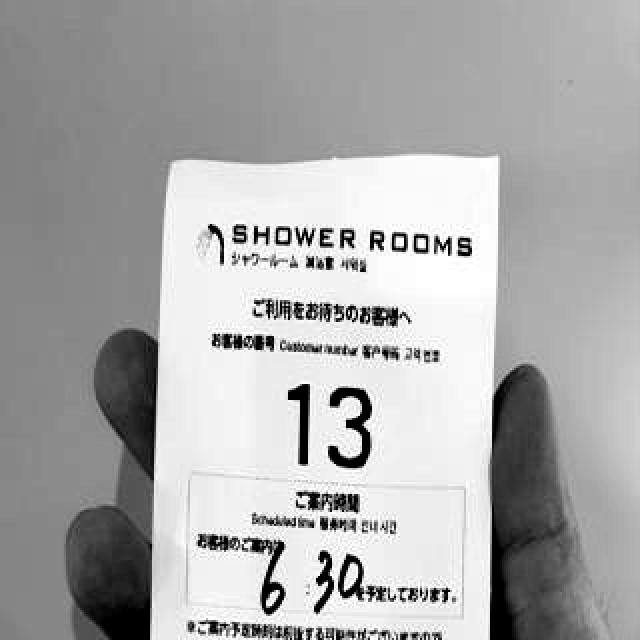 SHOWER ROOMS
シャワールーム 淋浴室 샤워실
ご利用をお待ちのお客様へ
お客様の番号 Customer number 客户号码 고객 번호
13
ご案内時間
Scheduled time 服务时间 안내 시간
お客様のご案内は
6:30を予定しております。
※ご案内予定時刻は前後する可能性がございますので